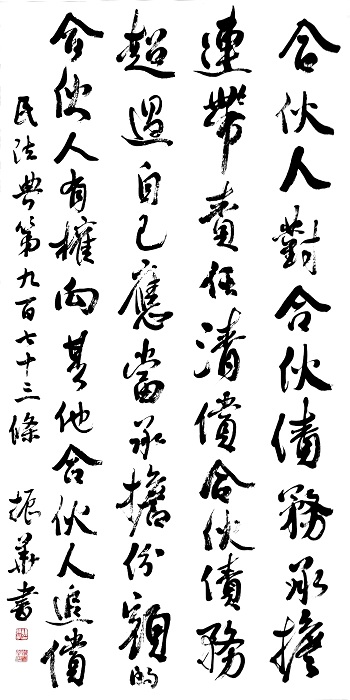 合伙人對合伙債務承擔
連帶責任清償合伙債務
超過自己應當承擔份額的
合伙人有權向其他合伙人追償
民法典第九百七十三條 振華書